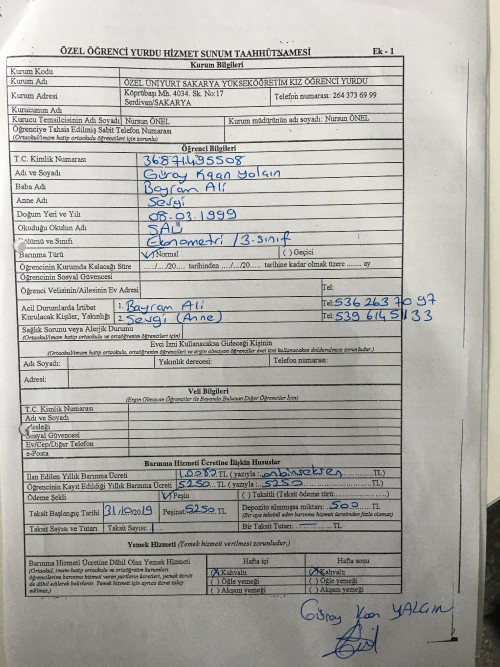 ÖZEL ÖĞRENCİ YURDU HİZMET SUNUM TAAHHÜTNAMESİ Ek - 1
Kurum Bilgileri
Kurum Kodu
Kurum Adı ÖZEL ÜNİYURT SAKARYA YÜKSEKÖĞRETİM KIZ ÖĞRENCİ YURDU
Kurum Adresi Köprübaşı Mh. 4034. Sk. No:17 Serdivan/SAKARYA Telefon numarası: 264 373 69 99
Kurucunun Adı
Kurucu Temsilcisinin Adı Soyadı Nursun ÖNEL Kurum müdürünün adı soyadı: Nursun ÖNEL
Öğrenciye Tahsis Edilmiş Sabit Telefon Numarası
(Ortaokul/imam hatip ortaokulu öğrencileri için zorunlu)
Öğrenci Bilgileri
T.C. Kimlik Numarası 36871495508
Adı ve Soyadı Güray Kaan Yalçın
Baba Adı Bayram Ali
Anne Adı Sevgi
Doğum Yeri ve Yılı 08.03.1999
Okuduğu Okulun Adı SAÜ
Bölümü ve Sınıfı Ekonometri / 3. sınıf
Barınma Türü (✓) Normal ( ) Geçici
Öğrencinin Kurumda Kalacağı Süre ..../..../20..... tarihinden ..../..../20..... tarihine kadar olmak üzere ........ ay
Öğrencinin Sosyal Güvencesi
Öğrenci Velisinin/Ailesinin Ev Adresi Tel:
Acil Durumlarda İrtibat Kurulacak Kişiler, Yakınlığı 1. Bayram Ali Tel: 536 263 70 97
2. Sevgi (Anne) Tel: 539 614 51 33
Sağlık Sorunu veya Alerjik Durumu
(Ortaokul/imam hatip ortaokulu ve ortaöğretim öğrencileri için)
Evci İzni Kullanacaksa Gideceği Kişinin
(Ortaokul/imam hatip ortaokulu, ortaöğretim öğrencileri ve ergin olmayan öğrenciler evci izni kullanacaksa doldurulması zorunludur.)
Adı Soyadı: Yakınlık derecesi: Telefon numarası:
Adresi:
Veli Bilgileri
(Ergin Olmayan Öğrenciler ile Beyanda Bulunan Diğer Öğrenciler İçin)
T.C. Kimlik Numarası
Adı ve Soyadı
Mesleği
Sosyal Güvencesi
Ev/Cep/Diğer Telefon
e-Posta
Barınma Hizmeti Ücretine İlişkin Hususlar
İlan Edilen Yıllık Barınma Ücreti TL ( yazıyla : onbinseksen TL)
Öğrencinin Kayıt Edildiği Yıllık Barınma Ücreti 5250 TL ( yazıyla : 5250 TL)
Ödeme Şekli (✓) Peşin ( ) Taksitli (Taksit ödeme türü: )
Taksit Başlangıç Tarihi 31/10/2019 Peşinat: 5250 TL Depozito alınmışsa miktarı: 500 TL
(Bir aya tekabül eden barınma hizmeti ücretinden fazla olamaz)
Taksit Sayısı ve Tutarı Taksit Sayısı: 1 Bir Taksit Tutarı: — TL
Yemek Hizmeti (Yemek hizmeti verilmesi zorunludur.)
Barınma Hizmeti Ücretine Dâhil Olan Yemek Hizmeti Hafta içi Hafta sonu
(Ortaokul, imam-hatip ortaokulu ve ortaöğretim kurumları öğrencilerine barınma hizmeti veren yurtların ücretleri, yemek ücreti de dâhil edilerek belirlenir. Yemek hizmeti için ayrıca ücret talep edilmez.)
(X) Kahvaltı (X) Kahvaltı
( ) Öğle yemeği ( ) Öğle yemeği
( ) Akşam yemeği ( ) Akşam yemeği
Güray Kaan YALÇIN